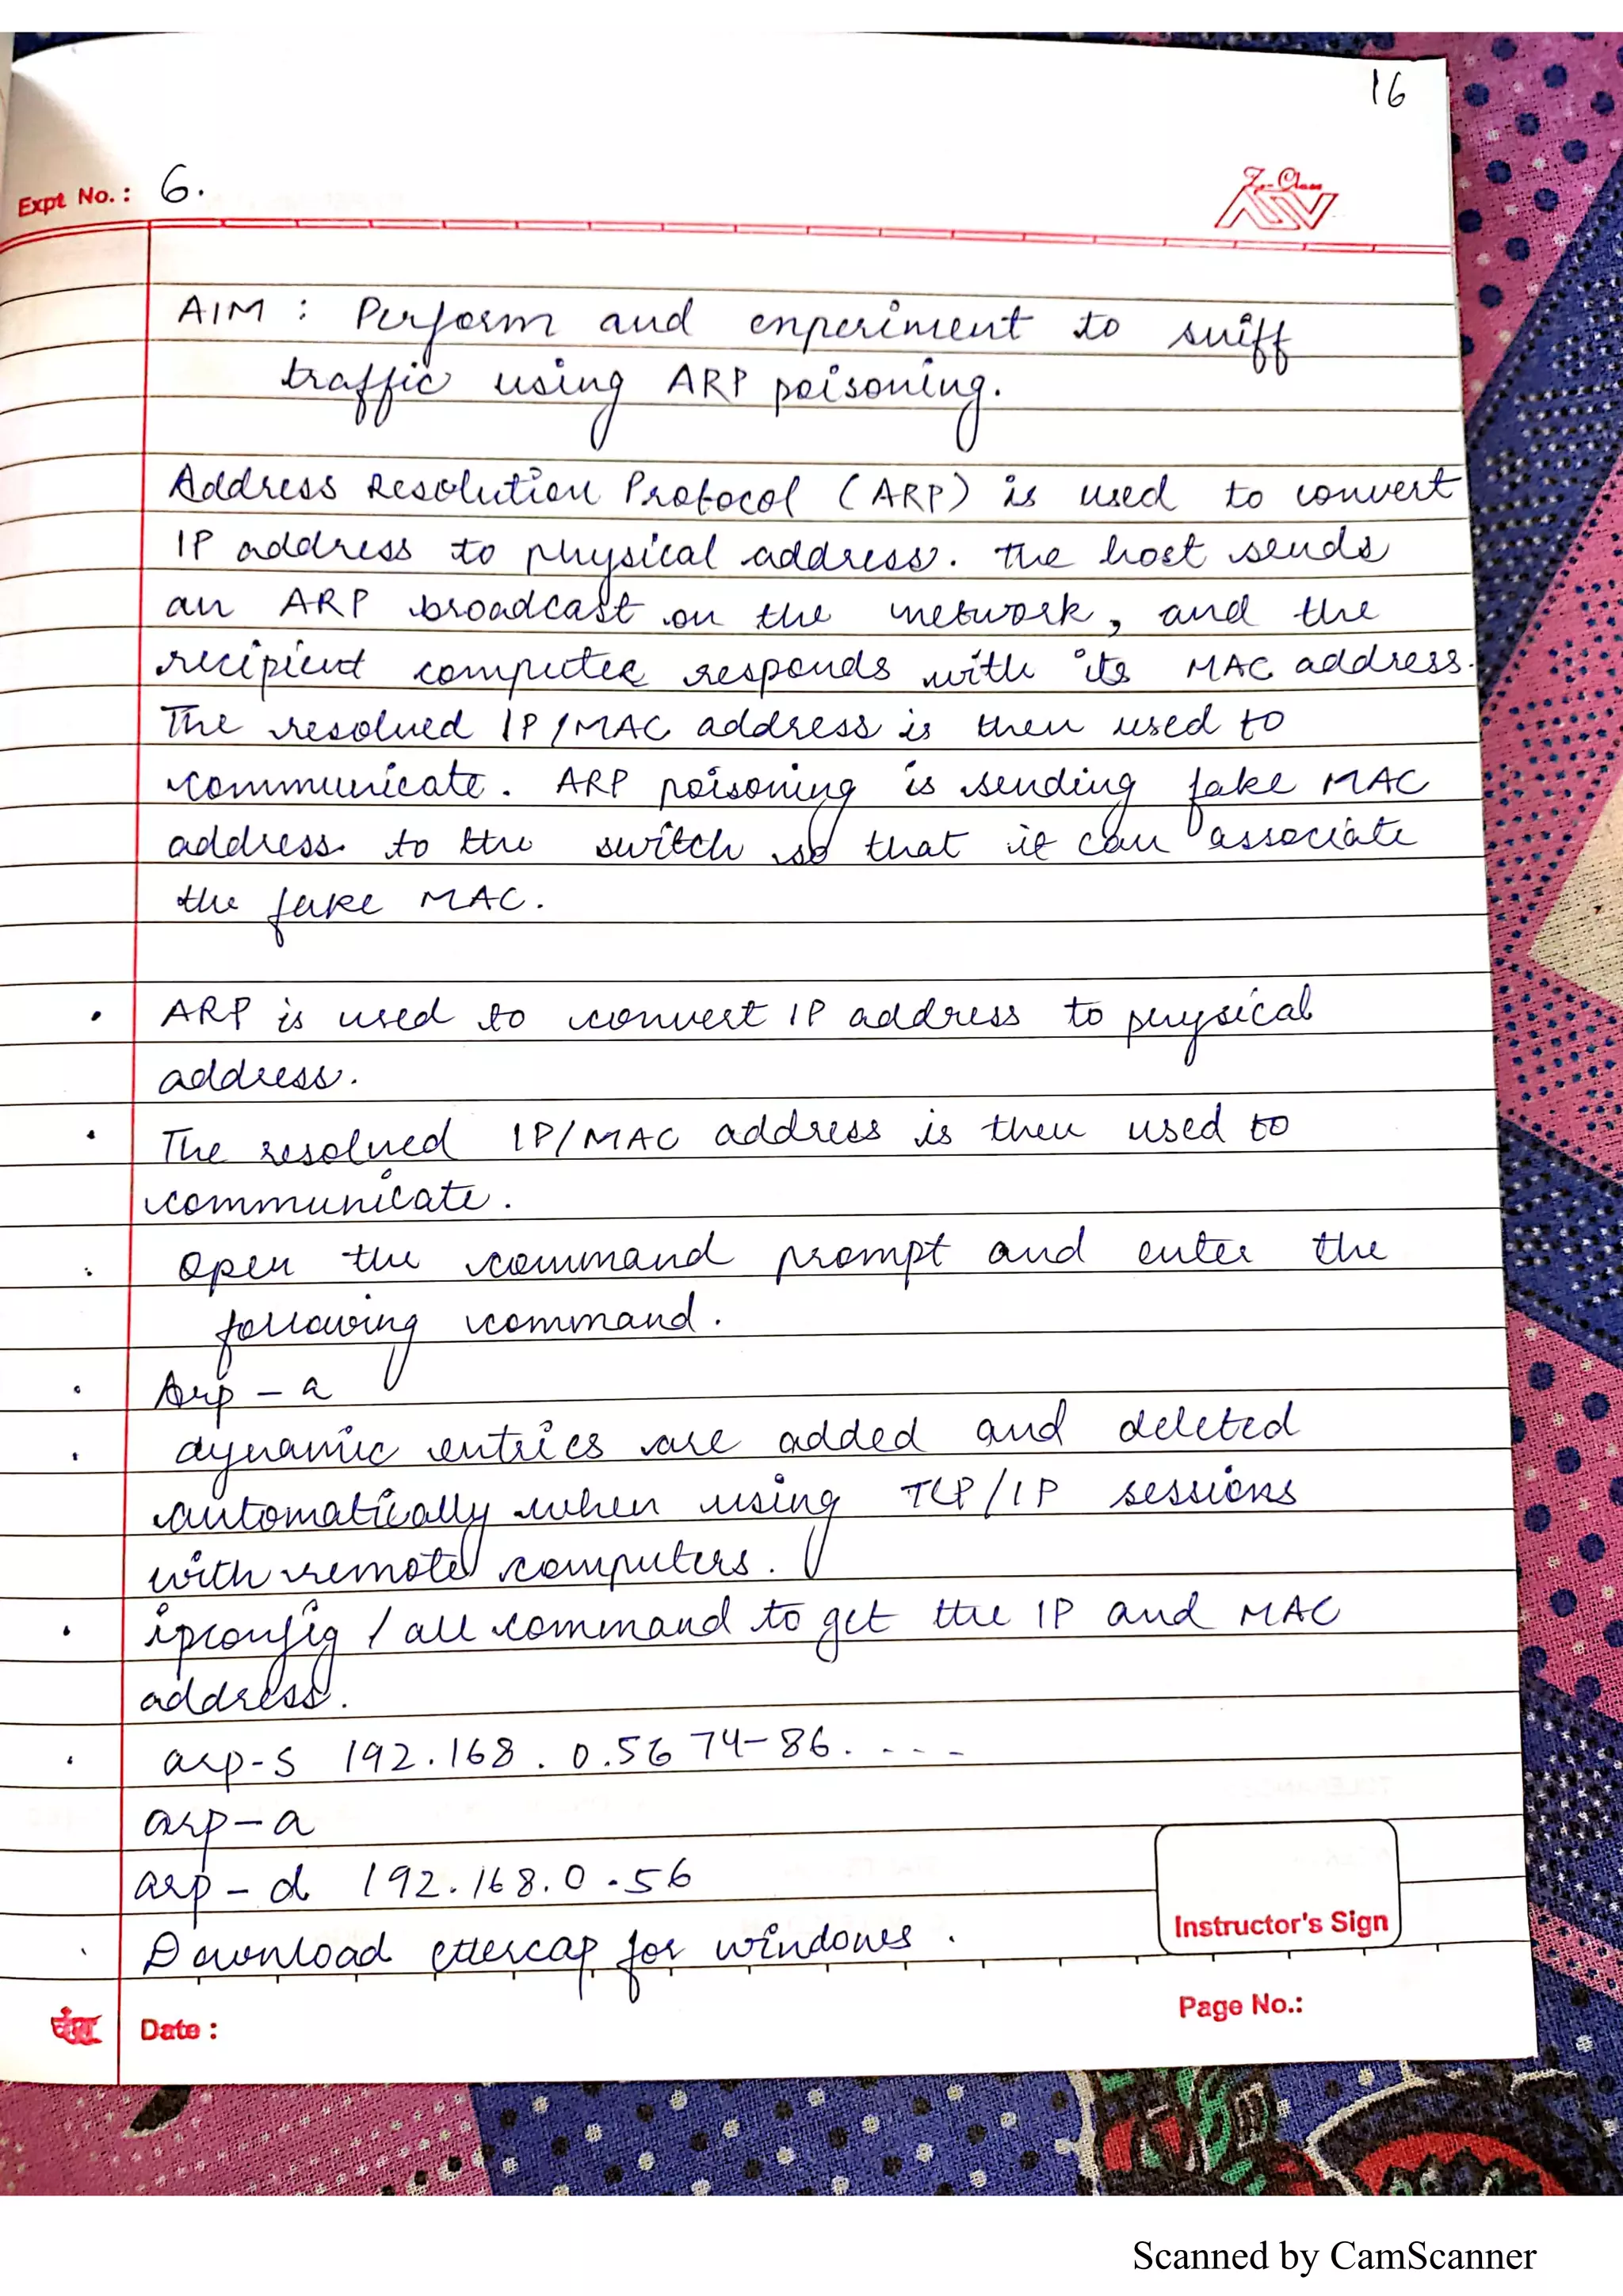 16
Expt No. : 6.
AIM : Perform and enperiment to sniff
traffic using ARP poisoning.
Address Resolution Protocol (ARP) is used to convert
IP address to physical address. The host sends
an ARP broadcast on the network, and the
recipient computer responds with its MAC address.
The resolved IP/MAC address is then used to
communicate. ARP poisoning is sending fake MAC
address to the switch so that it can associate
the fake MAC.
• ARP is used to convert IP address to physical
address.
• The resolved IP/MAC address is then used to
communicate.
• Open the command prompt and enter the
following command.
• Arp - a
• dynamic entries are added and deleted
automatically when using TCP/IP sessions
with remote computers.
• ipconfig / all command to get the IP and MAC
address.
• arp-s 192.168.0.56 74-86. ....
arp-a
arp-d 192.168.0.56
• Download ettercap for windows.
Instructor's Sign
Date :
Page No.:
Scanned by CamScanner